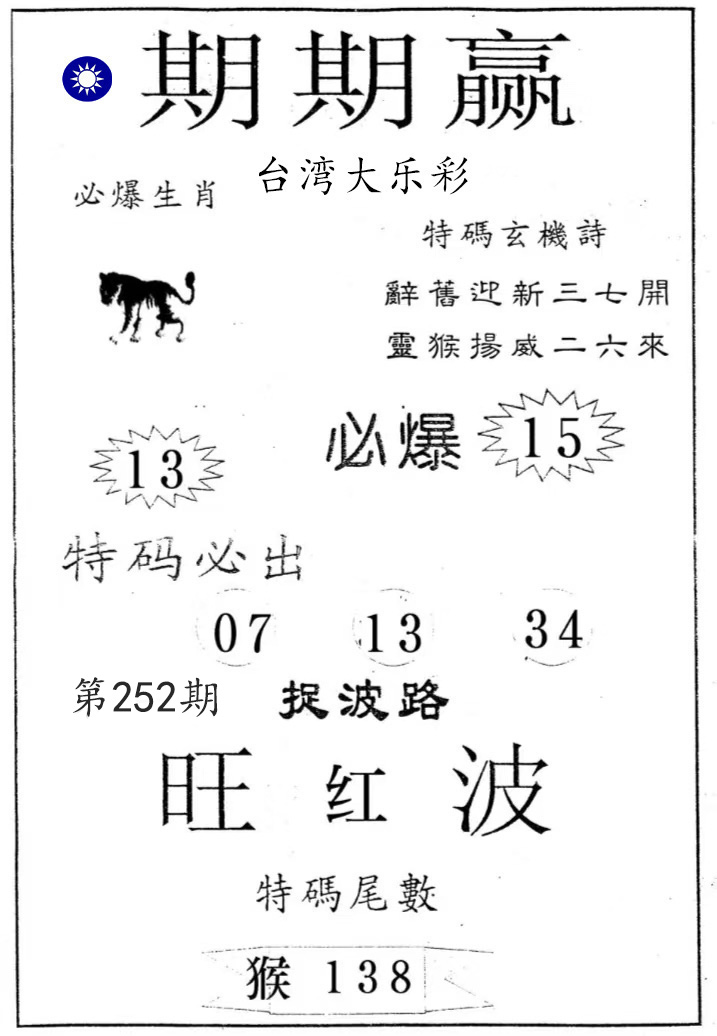 期期赢
台湾大乐彩
必爆生肖
特碼玄機詩
辭舊迎新三七開
靈猴揚威二六來
必爆 15
13
特码必出
07 13 34
第252期 捉波路
旺红波
特碼尾數
猴 138